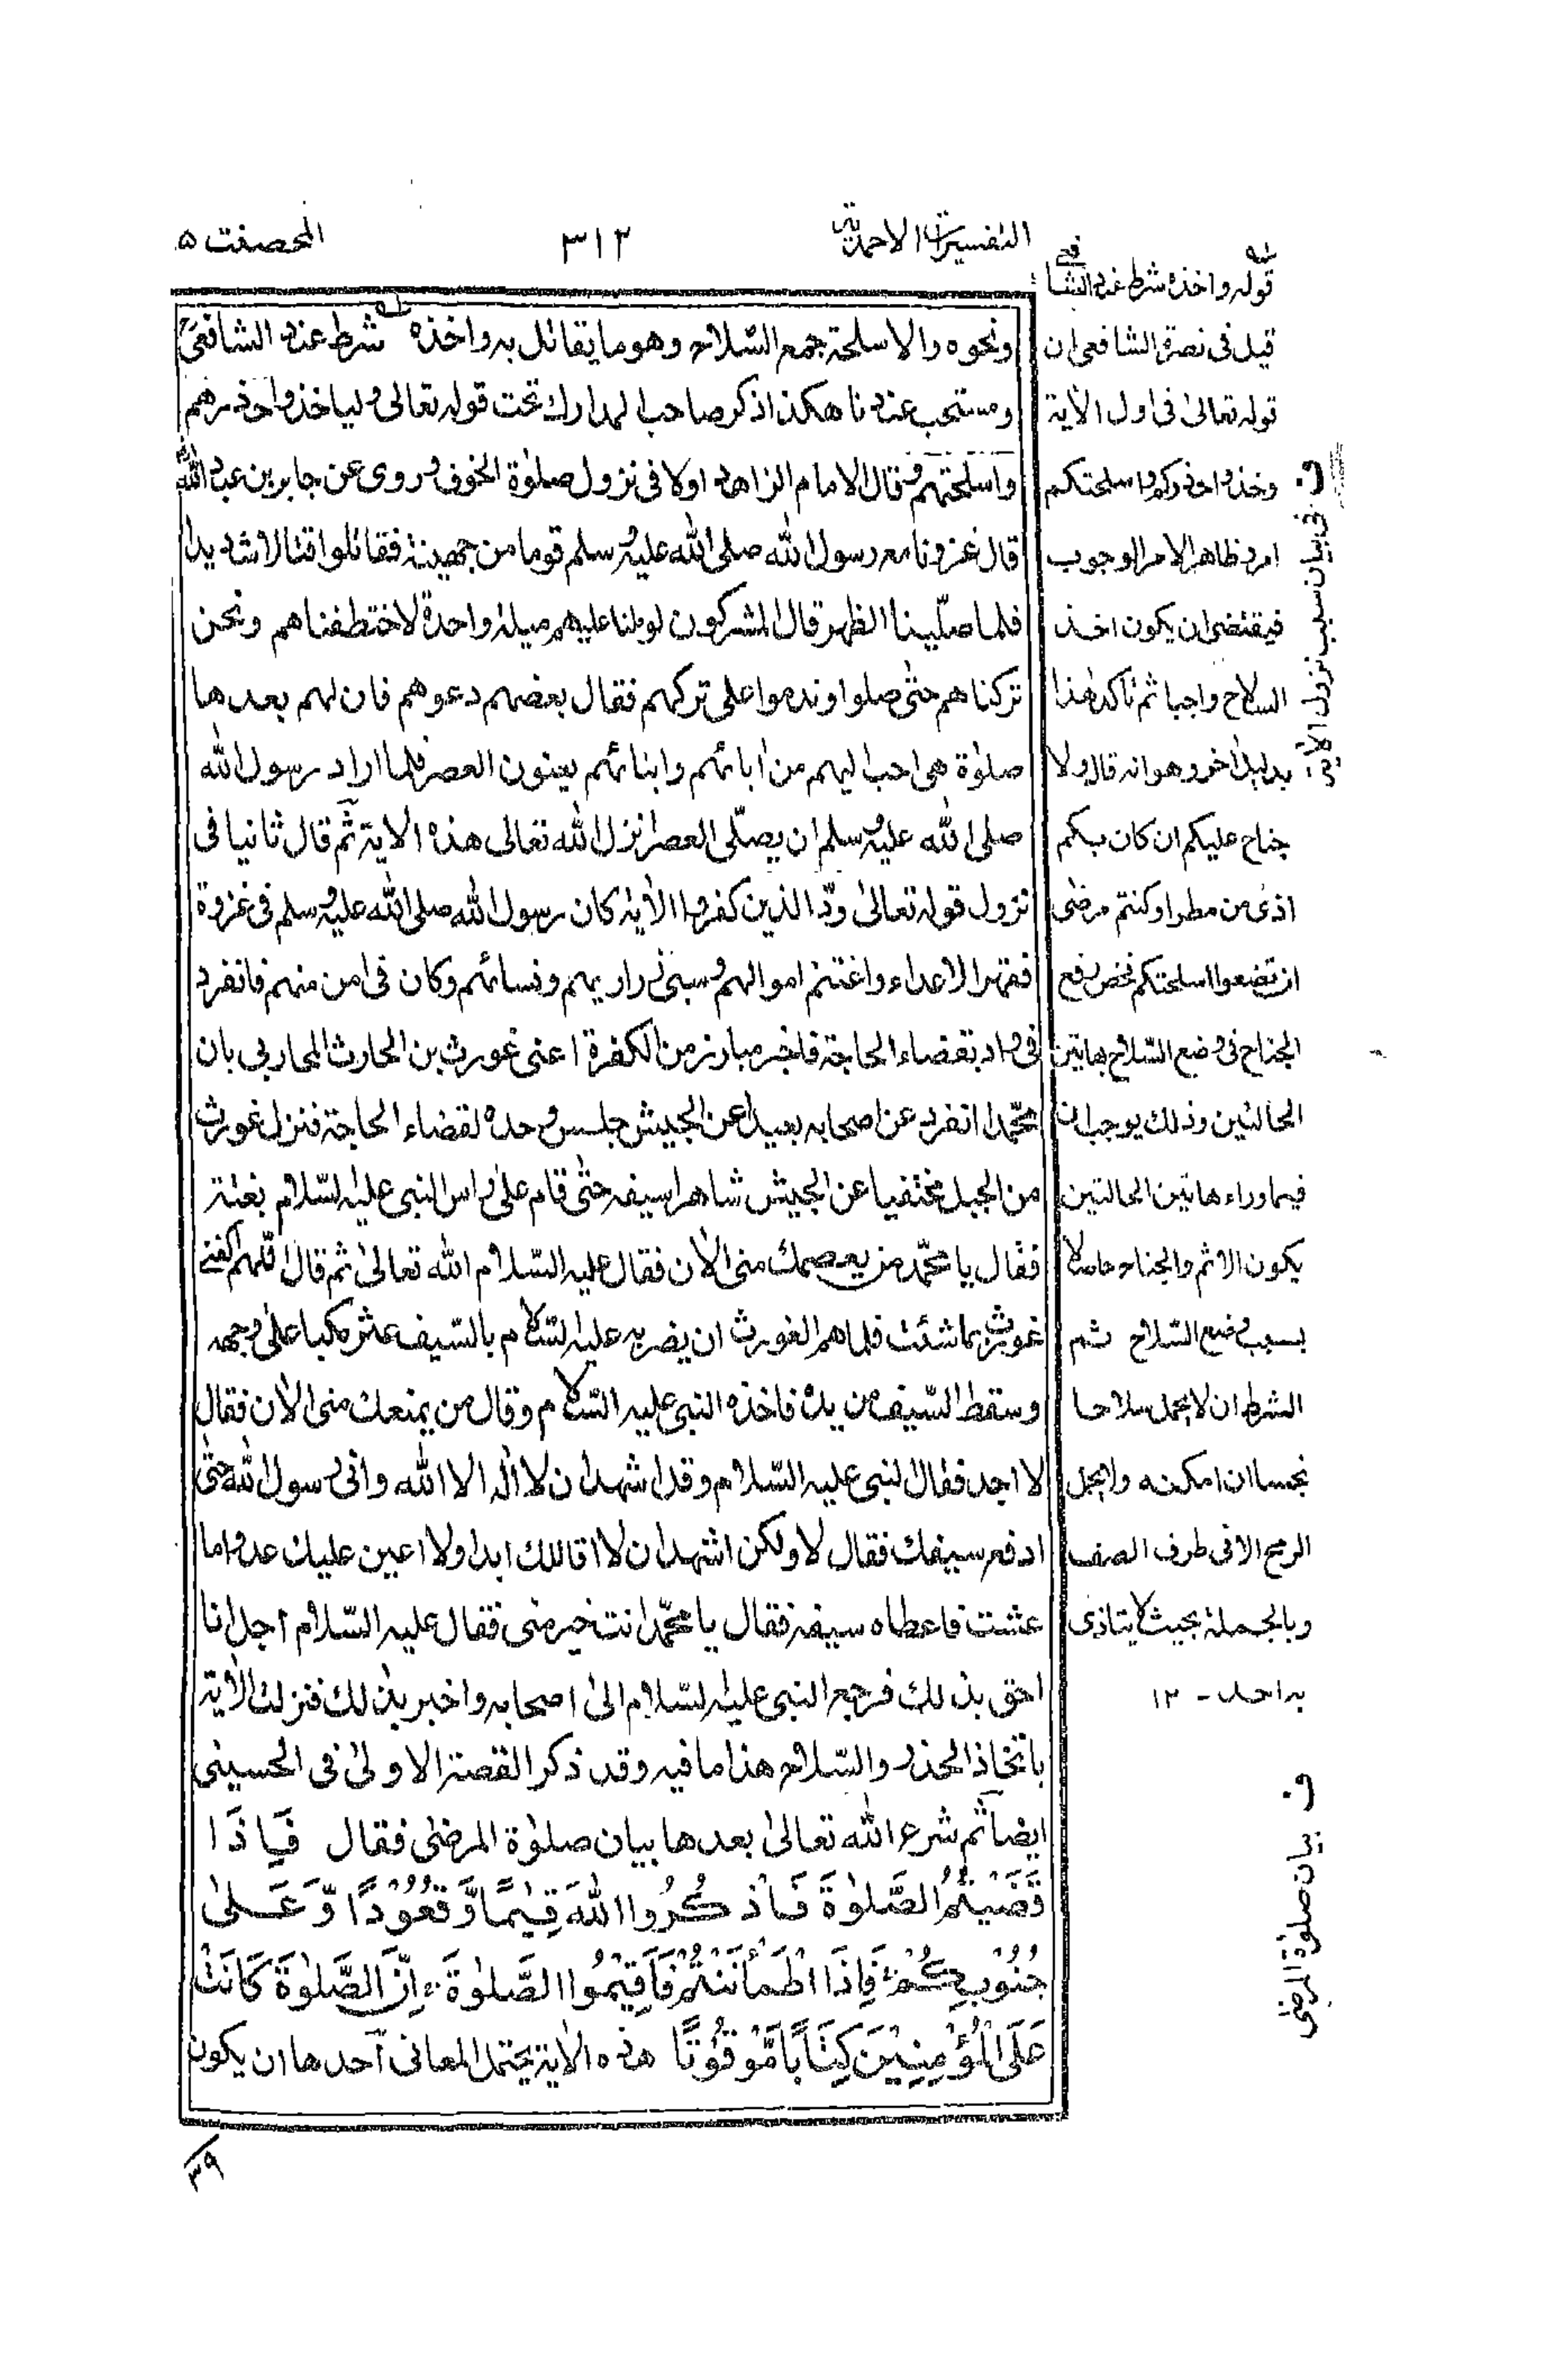 التفسيرات الاحمدية
٣١٢
المحصنت ٥
ونحوه والاسلحة جمع السلاح وهو ما يقاتل به واخذه شرط عند الشافعىؒ
ومستحب عندنا هكذا ذكر صاحب المدارك تحت قوله تعالى وليأخذوا حذرهم
واسلحتهم وقال الامام الزاهد اولا فى نزول صلوٰة الخوف وروى عن جابر بن عبد الله
قال غزونا مع رسول الله صلى الله عليه وسلم قوما من جهينة فقاتلوا قتالا شديدا
فلما صلّينا الظهر قال المشركون لو ملنا عليهم ميلة واحدة لاختطفناهم ونحن
تركناهم حتىٰ صلوا وندموا على تركهم فقال بعضهم دعوهم فان لهم بعدها
صلوٰة هى احب اليهم من اٰبائهم وابنائهم يعنون العصر فلما اراد رسول الله
صلى الله عليه وسلم ان يصلّى العصر انزل الله تعالى هذه الاية ثم قال ثانيا فى
نزول قوله تعالىٰ ودّ الذين كفروا الاٰية كان رسول الله صلى الله عليه وسلم فى غزوة
فقهر الاعداء واغتنم اموالهم وسبىٰ ذراريهم ونسائهم وكان فى امن منهم فانفرد
فى واد بقضاء الحاجة فاخبر مبارز من الكفرة اعنى غورث بن الحارث المحاربى بان
محمّدا انفرد عن اصحابه بعيدا عن الجيش جلس وحده لقضاء الحاجة فنزل غورث
من الجبل مختفيا عن الجيش شاهرا سيفه حتىٰ قام علىٰ راس النبى عليه السّلام بغتة
فقال يا محمّد من يعصمك منى الاٰن فقال عليه السّلام الله تعالىٰ ثم قال اللّهم اكفنى
غورث بما شئت فلما هم الغورث ان يضربه عليه السّلام بالسّيف عثر مكبا علىٰ وجهه
وسقط السّيف من يده فاخذه النبى عليه السّلام وقال من يمنعك منى الاٰن فقال
لا اجد فقال النبى عليه السّلام وقد اشهد ان لا اله الا الله وانى رسول الله حتىٰ
ادفع سيفك فقال لا ولكن اشهد ان لا اقاتلك ابدا ولا اعين عليك عدوا ما
عشت فاعطاه سيفه فقال يا محمّد انت خير منى فقال عليه السّلام اجل انا
احق بذلك فرجع النبى عليه السّلام الىٰ اصحابه واخبر بذلك فنزلت الاٰية
باتخاذ الحذر والسّلاح هذا ما فيه وقد ذكر القصة الاولىٰ فى الحسينى
ايضا ثم شرع الله تعالىٰ بعدها بيان صلوٰة المرضىٰ فقال فَاِذَا
قَضَيْتُمُ الصَّلوٰةَ فَاذْكُرُوا اللهَ قِيٰمًا وَّقُعُوْدًا وَّعَلىٰ
جُنُوْبِكُمْ فَاِذَا اطْمَأْنَنْتُمْ فَاَقِيْمُوا الصَّلوٰةَ اِنَّ الصَّلوٰةَ كَانَتْ
عَلَى الْمُؤْمِنِيْنَ كِتَابًا مَّوْقُوْتًا هذه الاٰية يحتمل المعانى احدها ان يكون
٣٩
قوله واخذه شرط عند الشافعى
قيل فى نصرة الشافعى ان
قوله تعالىٰ فى اول الاٰية
وخذوا حذركم واسلحتكم
امر وظاهر الامر الوجوب
فيقتضى ان يكون اخذ
السلاح واجبا ثم تأكد هٰذا
بدليل اٰخر وهو انه قال ولا
جناح عليكم ان كان بكم
اذى من مطر او كنتم مرضٰى
ان تضعوا اسلحتكم فخص رفع
الجناح فى وضع السّلاح بهاتين
الحالتين وذلك يوجب ان
فيما وراء هاتين الحالتين
يكون الاثم والجناح حاصلا
بسبب وضع السّلاح ثم
الشرط ان لا يحمل سلاحا
نجسا ان امكنه ولا يحمل
الرمح الا فى طرف الصف
وبالجملة بحيث لا يتاذى
به احد - ١٢
ف فى بيان سبب نزول الاٰية
ف بيان صلوٰة المرضٰى